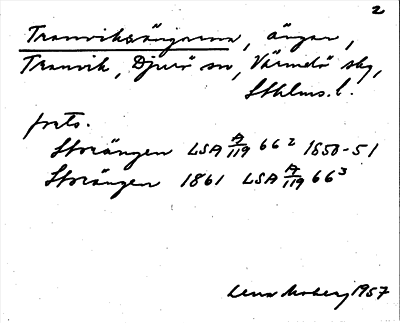 2
Tranviksängarna, ängar,
Tranvik, Djurö sn, Värmdö skg,
Sthlms. l.
forts.
Storängen LSA A/119 66² 1850-51
Storängen 1861 LSA A/119 66³
Lena Moberg 1957